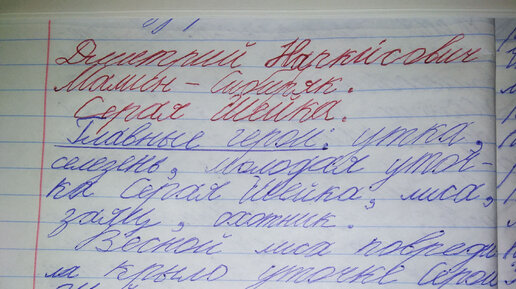 Дмитрий Наркисович
Мамин - Сибиряк.
Серая Шейка.
Главные герои: утка,
селезень, молодая уточ-
ка Серая Шейка, лиса,
заяц, охотник.
Весной лиса повреди
ла крыло уточке Серой